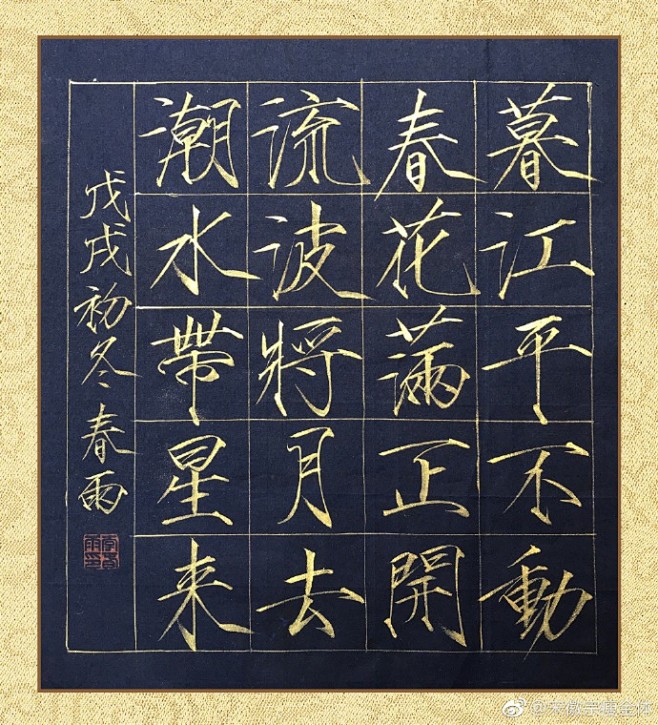 暮江平不動
春花滿正開
流波將月去
潮水帶星来
戊戌初冬 春雨
@宋徽宗瘦金体